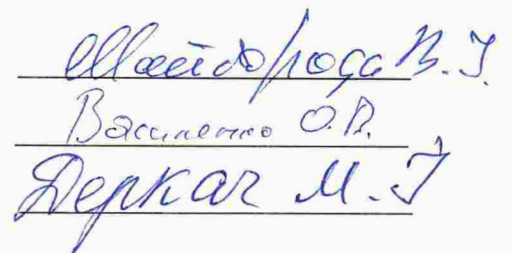 Шайдорода В. І.
Василенко О.В.
Деркач М. І